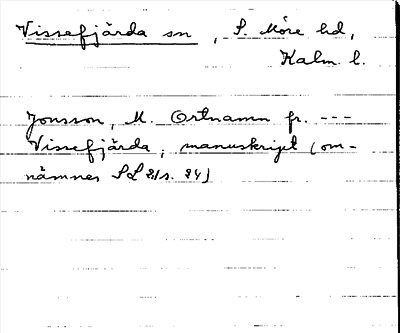 Vissefjärda sn, S. Möre hd,
Kalm. l.
Jonsson, M. Ortnamn fr. ---
Vissefjärda, manuskript (om-
nämnes SL 21 s. 24)